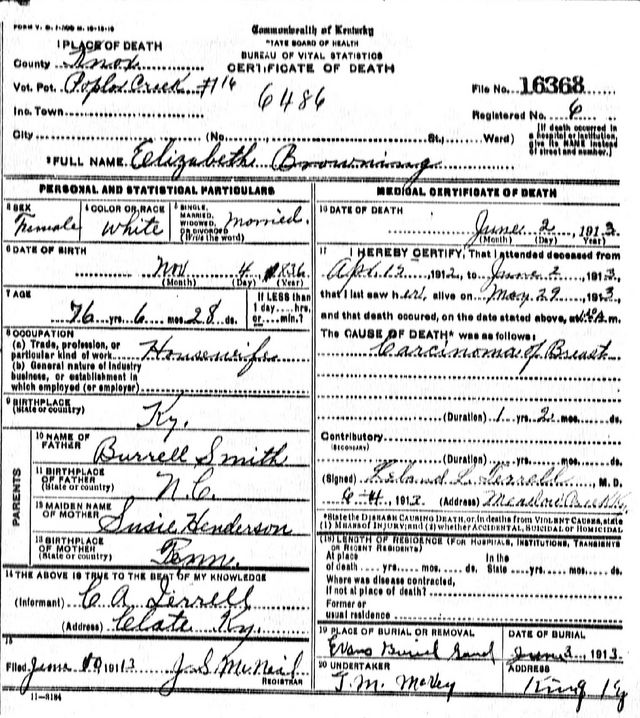 Commonwealth of Kentucky
STATE BOARD OF HEALTH
BUREAU OF VITAL STATISTICS
CERTIFICATE OF DEATH
1 PLACE OF DEATH
County Knox
Vot. Pct. Poplar Creek #116
6486
File No. 16368
Inc. Town
Registered No. 6
City (No. St., Ward)
[If death occurred in a hospital or institution, give its NAME instead of street and number.]
2 FULL NAME Elizabeth Browning
PERSONAL AND STATISTICAL PARTICULARS
3 SEX Female
4 COLOR OR RACE White
5 SINGLE, MARRIED, WIDOWED, OR DIVORCED (Write the word) Married.
6 DATE OF BIRTH
Nov 4 1836
(Month) (Day) (Year)
7 AGE
76 yrs. 6 mos. 28 ds.
If LESS than 1 day ... hrs. or ... min.?
8 OCCUPATION
(a) Trade, profession, or particular kind of work Housewife
(b) General nature of industry business, or establishment in which employed (or employer)
9 BIRTHPLACE (State or country) Ky.
PARENTS
10 NAME OF FATHER Burrell Smith
11 BIRTHPLACE OF FATHER (State or country) N.C.
12 MAIDEN NAME OF MOTHER Susie Henderson
13 BIRTHPLACE OF MOTHER (State or country) Tenn.
14 THE ABOVE IS TRUE TO THE BEST OF MY KNOWLEDGE
(Informant) C A Terrell
(Address) Clate Ky.
15
Filed June 1913 J S McNeil
REGISTRAR
11-3184
MEDICAL CERTIFICATE OF DEATH
16 DATE OF DEATH
June 2, 1913
(Month) (Day) (Year)
17 I HEREBY CERTIFY, That I attended deceased from
Apr. 12 1912, to June 2 1913,
that I last saw her alive on May 29 1913,
and that death occured, on the date stated above, at m.
The CAUSE OF DEATH* was as follows:
Carcinoma of Breast
(Duration) 1 yrs. 2 mos. ds.
Contributory
(SECONDARY)
(Duration) yrs. mos. ds.
(Signed) Leland L. Terrell M. D.
6-4, 1913 (Address)
*State the DISEASE CAUSING DEATH, or, in deaths from VIOLENT CAUSES, state (1) MEANS OF INJURY; and (2) whether ACCIDENTAL, SUICIDAL or HOMICIDAL
(18) LENGTH OF RESIDENCE (FOR HOSPITALS, INSTITUTIONS, TRANSIENTS OR RECENT RESIDENTS)
At place of death yrs. mos. ds. In the State yrs. mos. ds.
Where was disease contracted, if not at place of death?
Former or usual residence
19 PLACE OF BURIAL OR REMOVAL
Evans Burial
DATE OF BURIAL
June 3, 1913
20 UNDERTAKER
ADDRESS
King Ky